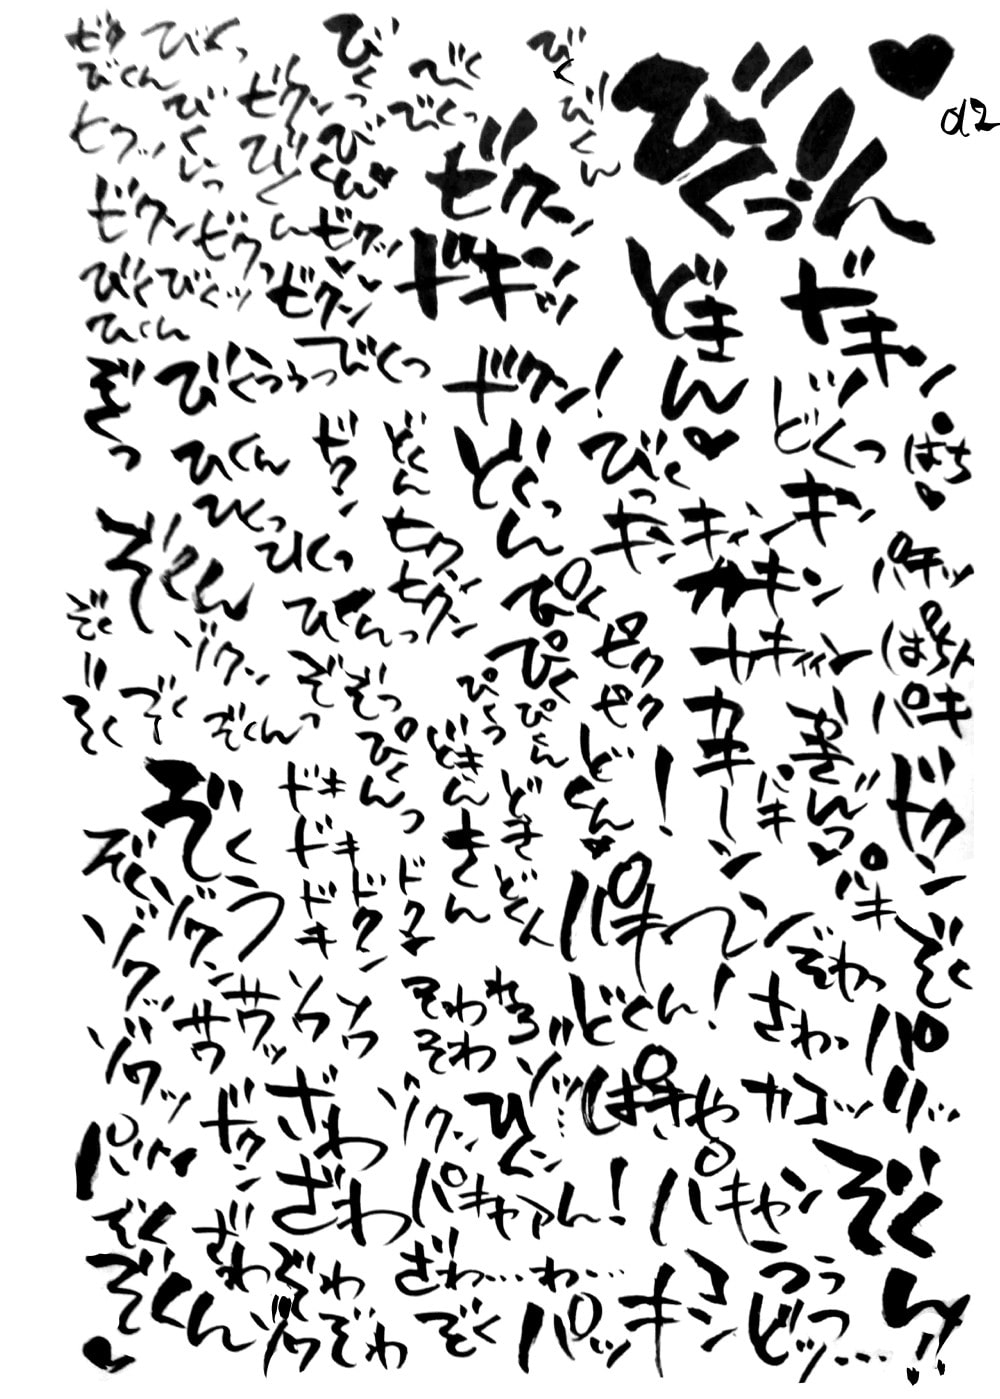 ビク びくっ びくっ びく びく
びくん びくっ ビクン びくっ びくん
ヒクッ びくん びくん♥ ビクーン びくづん ♥
d2
ビクン ビクッ ビクッ ドキンッ どきん♥ ドキン
びく びくッ ビクーン
ひくん
ぞくっ びくぅぅっ びくっ ドクン! どくっ ぱち♥
ひくん ドクン どくん どくっん びくっ キン キィン キン
ひくっ ひくっ ヒクン カキン パチッ
ぞくん ひくんっ ヒクン ぴく ピク ナキィィン ぱちん
ぞく ゾクン ぞぞっ ぴく ピク カキーン パキ
ぞく ぞく ぞくんっ ぴくんっ ぴくん どくん♥ ! パキ ドクン
ぞくぅ ドキ どきん どき
ぞくん ドキ きん どくん パキーン パキ ぞく
ゾクッ ゾクン ドキ ドクン ドクン ぞわっ
ザワ ザワッ ゾワ ゾワ ぞわ ぞわ どくん! さわっ パリッ
ゾワッ ドクン ざわ ゾクン ひくン ゾッ… ぱきゃ カコッ
パリィ ざわ パキャァん! パキャン ぞくん!!
ぞく ざわ ぞわ ざわ…わ…
ぞくん♥ ゾワ ぞわ ぞく パッキン コ つぅ どっ…